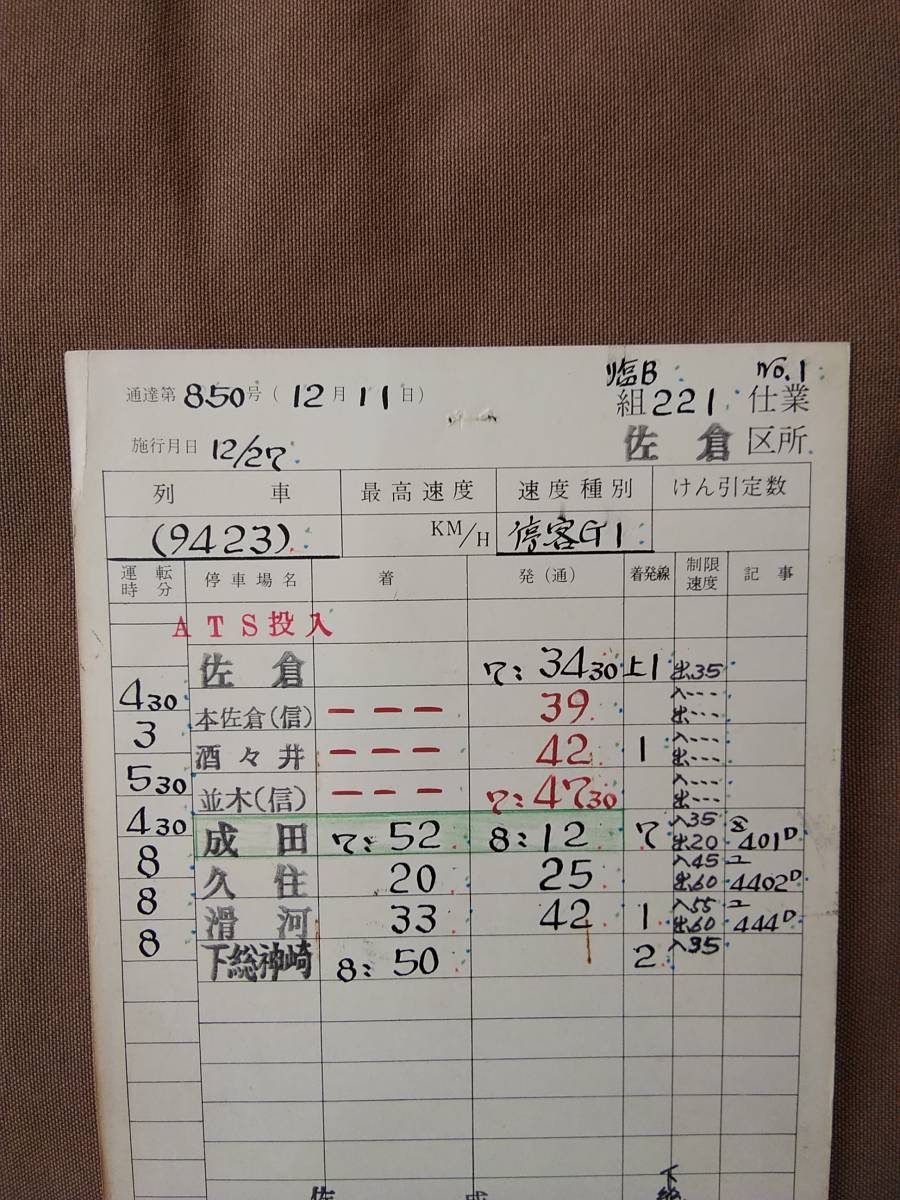 通達第850号(12月11日) 臨B No.1
組221 仕業
施行月日 12/27 佐倉 区所
列車 最高速度 速度種別 けん引定数
(9423) KM/H 停客G1
運転時分 停車場名 着 発(通) 着発線 制限速度 記事
ATS投入
佐倉 7:34 30 上1 出35
4 30
本佐倉(信) ーーー 39 入--- 出---
3
酒々井 ーーー 42 1 入--- 出---
5 30
並木(信) ーーー 7:47 30 入--- 出---
4 30
成田 7:52 8:12 7 入35 出20 401D
8
久住 20 25 入45 出60 4402D
8
滑河 33 42 1 入55 出60 444D
8
下総神崎 8:50 2 入35
佐 成 下総